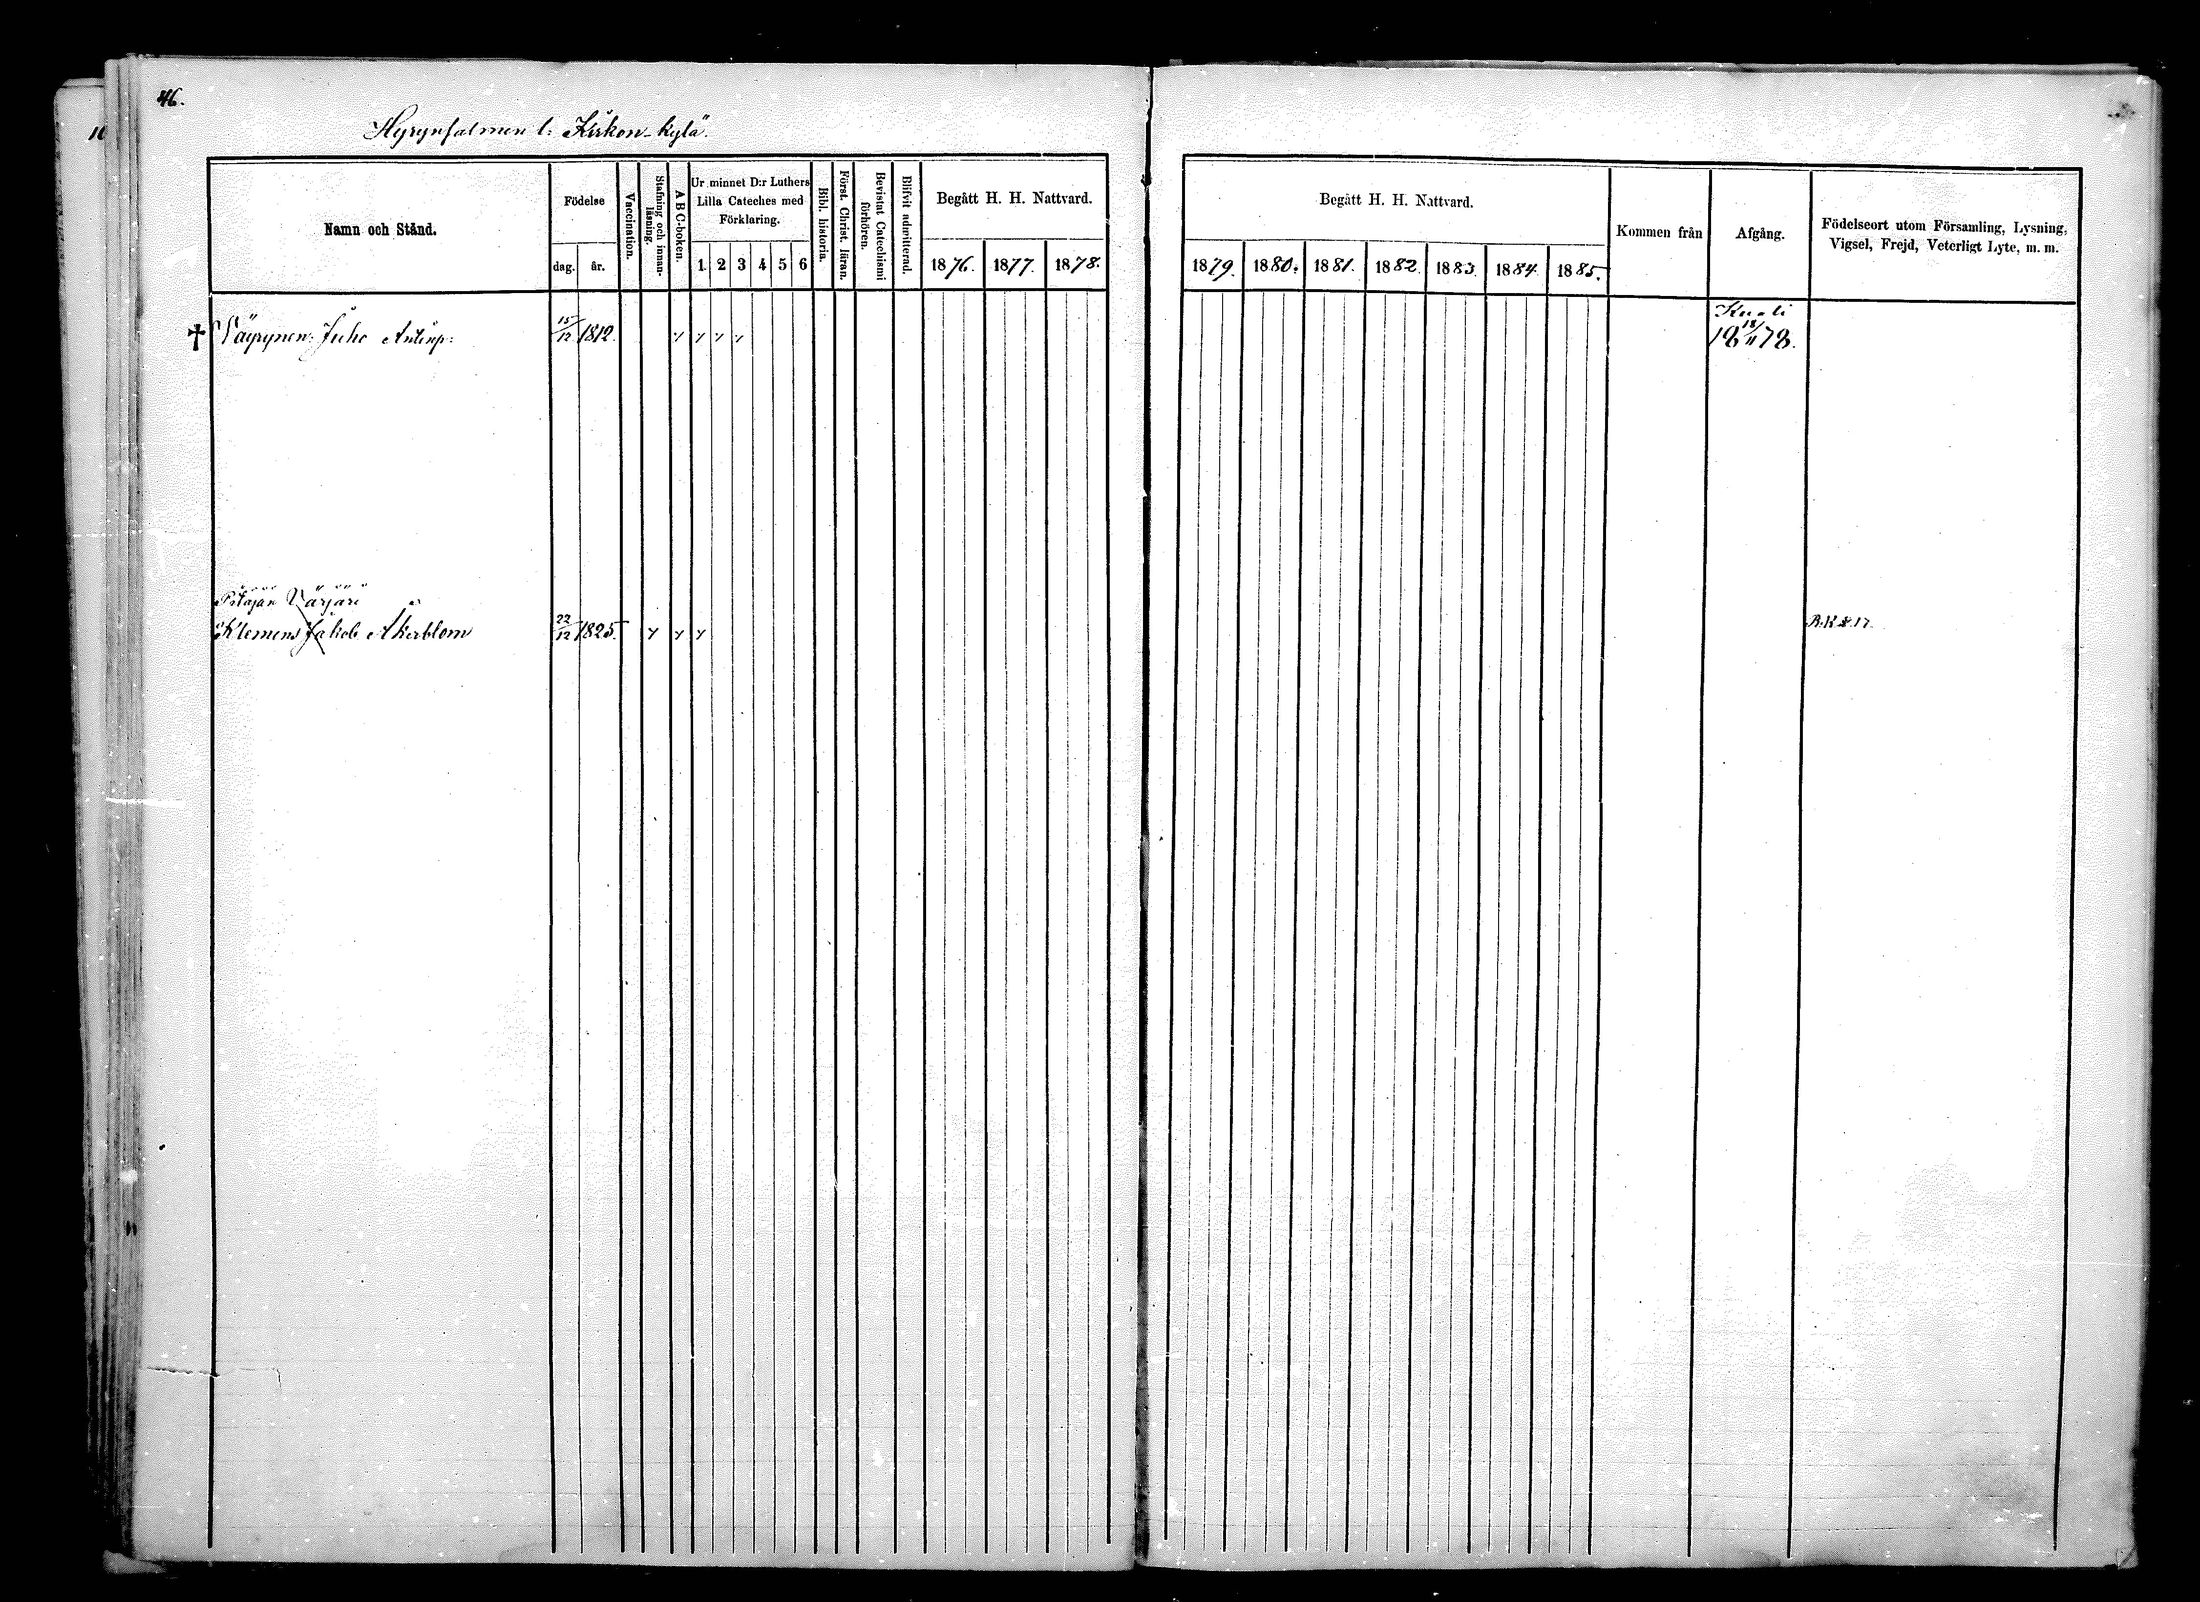 46.
Hyrynsalmen l: Kirkon-kylä.
Namn och Stånd.
Födelse
dag. år.
Vaccination.
Stafning och innan-
läsning.
ABC-boken.
Ur minnet D:r Luthers
Lilla Cateches med
Förklaring.
1 2 3 4 5 6
Bibl. historia.
Först. Christ. läran.
Bevistat Catechismi
förhören.
Blifvit admitterad.
Begått H. H. Nattvard.
1876. 1877. 1878.
Begått H. H. Nattvard.
1879. 1880. 1881. 1882. 1883. 1884. 1885.
Kommen från
Afgång.
Födelseort utom Församling, Lysning,
Vigsel, Frejd, Veterligt Lyte, m. m.
Kuoli
† Väyrynen: Juho Antinp: 15/12 1812. 18 18/11 78.
Pitäjän Värjäri
Klemens Jakob Åkerblom 22/12 1825. R.K. s. 17.